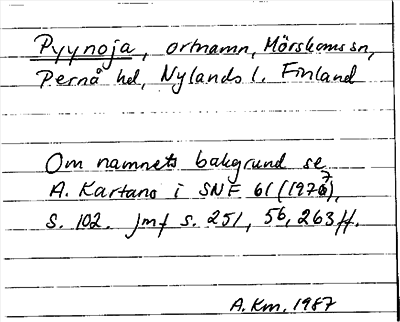 Pyynoja, ortnamn, Mörskoms sn,
Pernå hd, Nylands l. Finland
Om namnets bakgrund se
A. Kartano i SNF 61 (1977),
s. 102. Jmf s. 251, 56, 263 ff.
A.Km. 1987